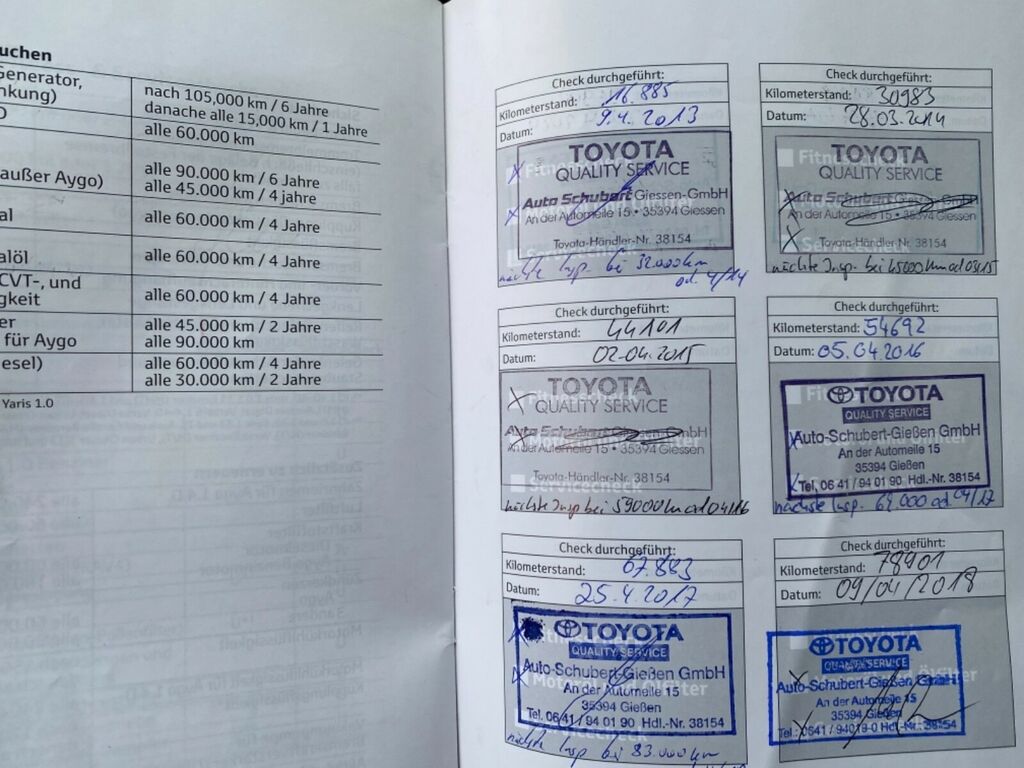 uchen
Generator,
nkung)
nach 105,000 km / 6 Jahre
danache alle 15,000 km / 1 Jahre
O
alle 60.000 km
außer Aygo)
alle 90.000 km / 6 Jahre
alle 45.000 km / 4 jahre
al
alle 60.000 km / 4 Jahre
alöl
alle 60.000 km / 4 Jahre
CVT-, und
gkeit
alle 60.000 km / 4 Jahre
er
für Aygo
alle 45.000 km / 2 Jahre
alle 90.000 km
esel)
alle 60.000 km / 4 Jahre
alle 30.000 km / 2 Jahre
Yaris 1.0
Check durchgeführt:
Kilometerstand: 16.885
Datum: 9.4.2013
TOYOTA
QUALITY SERVICE
Auto Schubert Giessen-GmbH
An der Automeile 15 • 35394 Giessen
Toyota-Händler-Nr. 38154
nächste Insp. bei 32.000 km
od. 4/14
Check durchgeführt:
Kilometerstand: 30983
Datum: 28.03.2014
TOYOTA
QUALITY SERVICE
Auto Schubert Giessen-GmbH
An der Automeile 15 • 35394 Giessen
Toyota-Händler-Nr. 38154
nächste Insp. bei 45000 km od 03/15
Check durchgeführt:
Kilometerstand: 44101
Datum: 02.04.2015
TOYOTA
QUALITY SERVICE
Auto Schubert Giessen-GmbH
An der Automeile 15 • 35394 Giessen
Toyota-Händler-Nr. 38154
Servicecheck
nächste Insp bei 59000 km od 04/16
Check durchgeführt:
Kilometerstand: 54692
Datum: 05.04.2016
TOYOTA
QUALITY SERVICE
Auto-Schubert-Gießen GmbH
An der Automeile 15
35394 Gießen
Tel. 06 41 / 94 01 90 Hdl.-Nr. 38154
nächste Insp. 69.000 od. 04/17
Check durchgeführt:
Kilometerstand: 67.883
Datum: 25.4.2017
TOYOTA
QUALITY SERVICE
Auto-Schubert-Gießen GmbH
An der Automeile 15
35394 Gießen
Tel. 06 41 / 94 01 90 Hdl.-Nr. 38154
Servicecheck
nächste Insp bei 83.000 km
Check durchgeführt:
Kilometerstand: 78901
Datum: 09/04/2018
TOYOTA
QUALITY SERVICE
Auto-Schubert-Gießen GmbH
An der Automeile 15
35394 Gießen
Tel.: 0641 / 94019-0 Hdl.-Nr. 38154